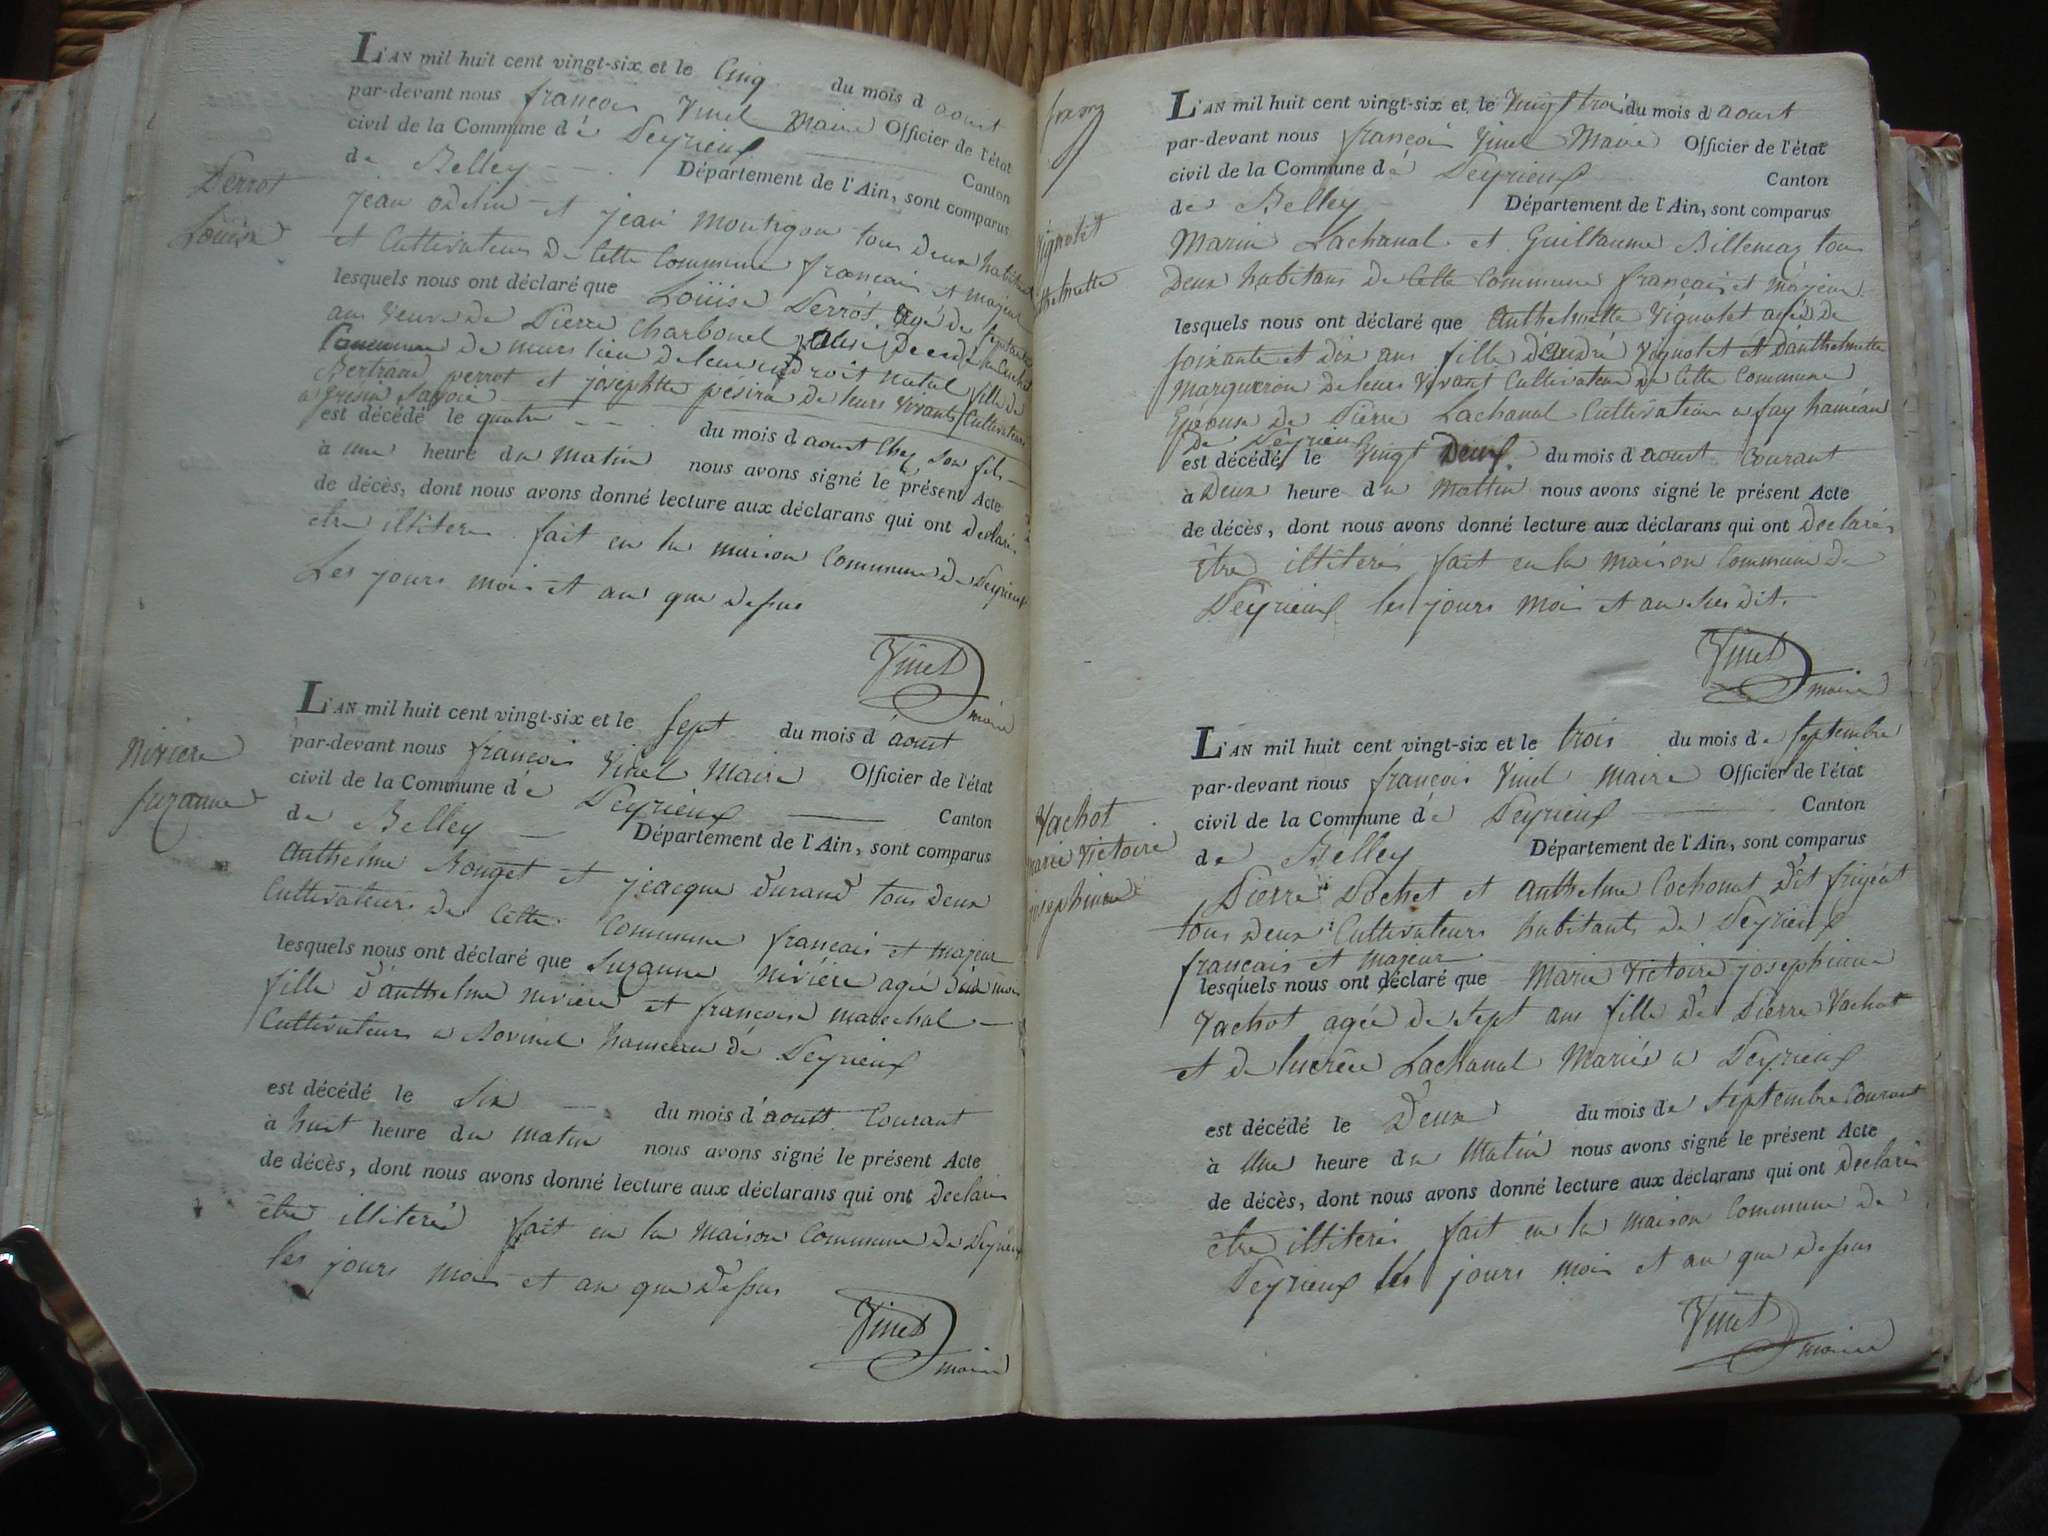 Perrot
Louise
L'AN mil huit cent vingt-six et le Cinq du mois d aoust
par-devant nous françois Vinel Maire Officier de l'état
civil de la Commune dé Peyrieux Canton
de Belley Département de l'Ain, sont comparus
jean et jean tous deux habitans
et Cultivateurs de Cette Commune francais et majeur
lesquels nous ont déclaré que Loüise Perrot agé de septante
ans veuve de Pierre Charbonel
de murs lieu de leur endroit natal fille de
Bertrand perrot et josephtte de leurs vivants Cultivateurs
est décédé le quatre du mois d aoust Chez son fils
à une heure du matin nous avons signé le présent Acte
de décès, dont nous avons donné lecture aux déclarans qui ont declaré
etre illiteré fait en la maison Commune de Peyrieux
Les jours mois et an que dessus
Vinel
maire
Niviere
Suzanne
L'AN mil huit cent vingt-six et le Sept du mois d'aoust
par-devant nous françois Vinel Maire Officier de l'état
civil de la Commune dé Peyrieux Canton
de Belley Département de l'Ain, sont comparus
Anthelme Rouget et jeacque durand tous deux
Cultivateurs de Cette Commune francais et majeur
lesquels nous ont déclaré que Suzanne nivière agé mois
fille d'anthelme niviere et francoise marechal
Cultivateurs a Bovinel hameau dé Peyrieux
est décédé le Six du mois d'aoust Courant
à huit heure du matin nous avons signé le présent Acte
de décès, dont nous avons donné lecture aux déclarans qui ont declaré
être illiteré fait en la maison Commune de Peyrieux
les jours mois et an que dessus
Vinel
maire
Vignolet
L'AN mil huit cent vingt-six et le Vingt trois du mois d aoust
par-devant nous françois Vinel Maire Officier de l'état
civil de la Commune dé Peyrieux Canton
de Belley Département de l'Ain, sont comparus
Marin Lachanal et Guillaume Billemaz tous
Deux habitans de Cette Commune français et majeur
lesquels nous ont déclaré que Anthelmette Vignolet agée de
soixante et dix ans fille d'André Vignolet et d'anthelmette
Marqueron de leurs vivant Cultivateur de Cette Commune
Epouse de Pierre Lachanal Cultivateur a fay hameau
de Peyrieu
est décédé le Vingt Deux du mois d aoust Courant
à Deux heure du Mattin nous avons signé le présent Acte
de décès, dont nous avons donné lecture aux déclarans qui ont Declarés
être illiterés fait en la maison Commune de
Peyrieux les jours mois et an sus dit.
Vinel
maire
Vachot
marie Victoire
josephinne
L'AN mil huit cent vingt-six et le trois du mois de septembre
par-devant nous françois Vinel maire Officier de l'état
civil de la Commune dé Peyrieux Canton
de Belley Département de l'Ain, sont comparus
Pierre Pochet et Anthelme Cochonat dit
tous deux Cultivateurs habitants de Peyrieux
francais et majeur
lesquels nous ont déclaré que Marie Victoire josephinne
Vachot agée de sept ans fille de Pierre Vachot
et de lucrèce Lachanal Mariés a Peyrieux
est décédé le Deux du mois de septembre Courant
à Une heure du Matin nous avons signé le présent Acte
de décès, dont nous avons donné lecture aux déclarans qui ont declarés
être illiterés fait en la maison Commune de
Peyrieux les jours mois et an que dessus
Vinel
maire